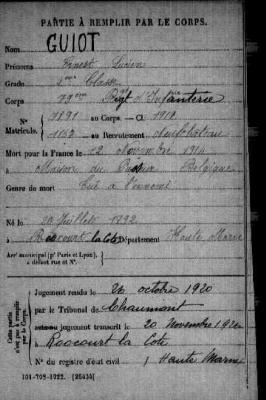 PARTIE À REMPLIR PAR LE CORPS.
Nom GUIOT
Prénoms Ernest Lucien
Grade 2ème Classe
Corps 79ème Régt d'Infanterie
N° 7891 au Corps. — Cl. 1912
Matricule. 1163 au Recrutement Neufchâteau
Mort pour la France le 12 Novembre 1914
à Maison du Belgique
Genre de mort Tué à l'ennemi
Né le 20 Juillet 1892
à Roocourt la Côte Département Haute Marne
Arr' municipal (p' Paris et Lyon),
à défaut rue et N°.
Cette partie n'est pas à remplir par le Corps.
Jugement rendu le 26 octobre 1920
par le Tribunal de Chaumont
jugement transcrit le 20 Novembre 1920
à Roocourt la Côte
N° du registre d'état civil Haute Marne
101-708-1922. [26434]